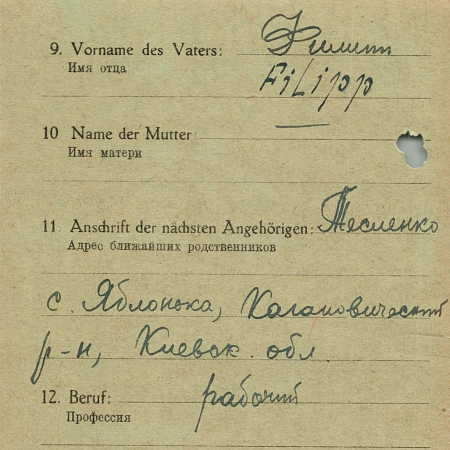 9. Vorname des Vaters: Филипп
Имя отца
Filipp
10 Name der Mutter:
Имя матери
11. Anschrift der nächsten Angehörigen: Тесленко
Адрес ближайших родственников
с. Яблонька, Кагановический
р-н, Киевск. обл.
12. Beruf: рабочий
Профессия